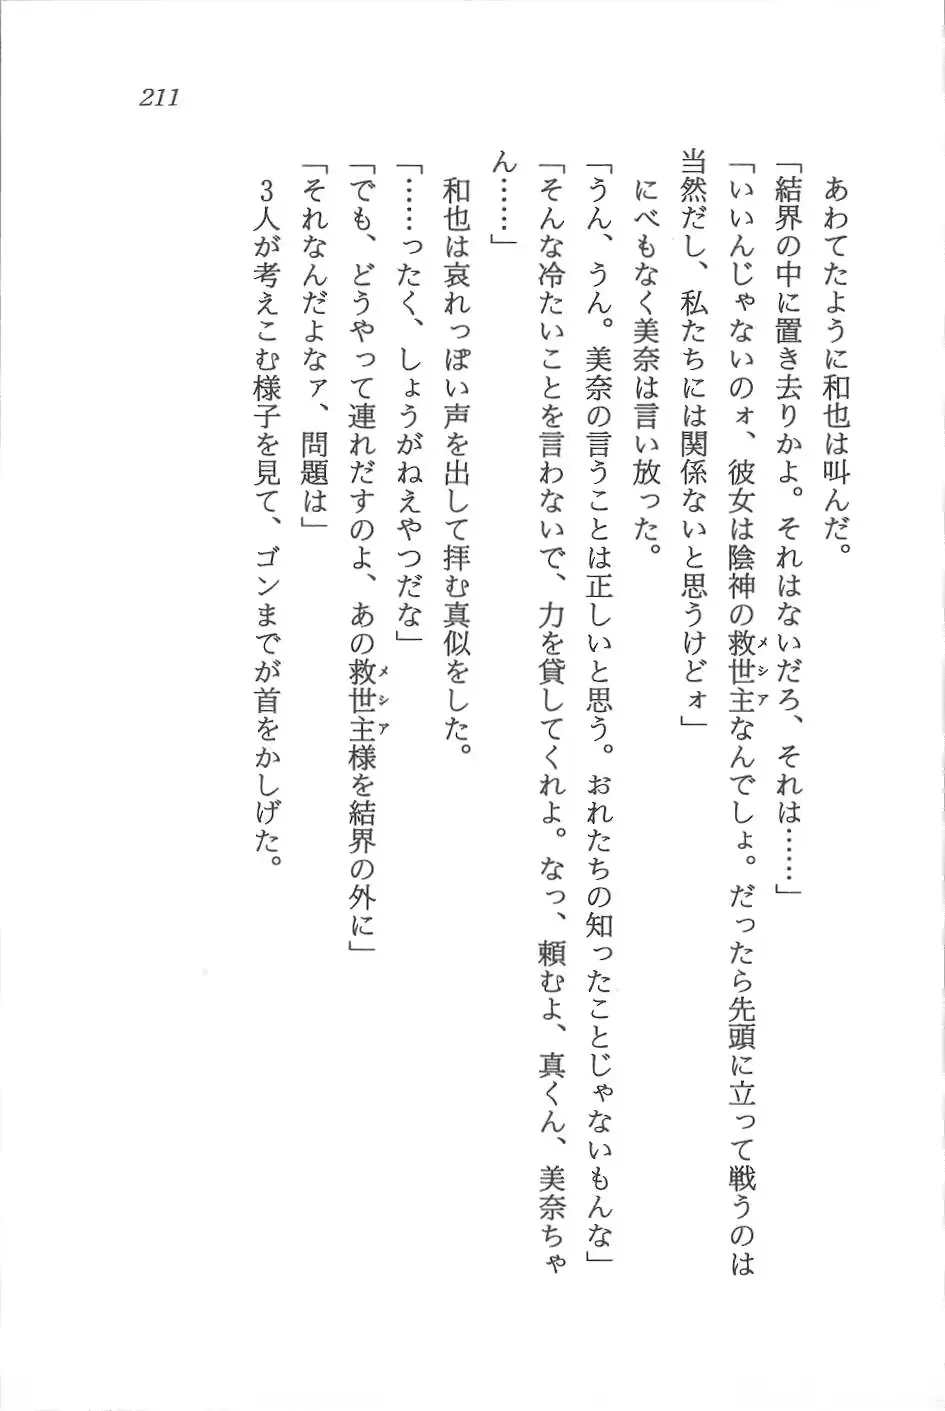 211
あわてたように和也は叫んだ。
「結界の中に置き去りかよ。それはないだろ、それは……」
「いいんじゃないのォ、彼女は陰神の救世主なんでしょ。だったら先頭に立って戦うのは
メシア
当然だし、私たちには関係ないと思うけどォ」
にべもなく美奈は言い放った。
「うん、うん。美奈の言うことは正しいと思う。おれたちの知ったことじゃないもんな」
「そんな冷たいことを言わないで、力を貸してくれよ。なっ、頼むよ、真くん、美奈ちゃ
ん……」
和也は哀れっぽい声を出して拝む真似をした。
「……ったく、しょうがねえやつだな」
「でも、どうやって連れだすのよ、あの救世主様を結界の外に」
メシア
「それなんだよなァ、問題は」
3人が考えこむ様子を見て、ゴンまでが首をかしげた。